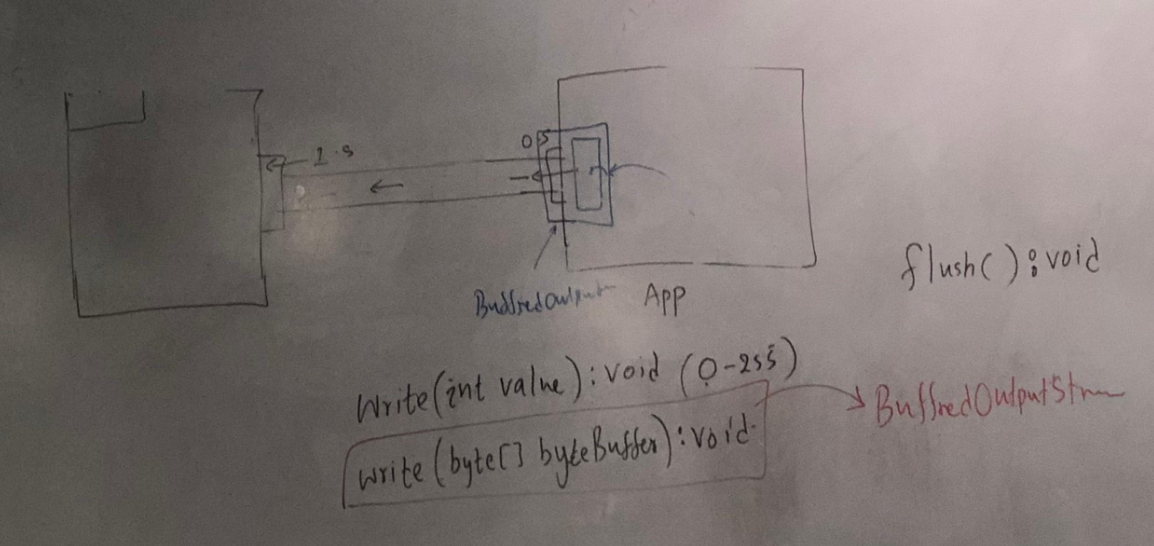 1.s
OS
BuffredOutput
App
flush() : void
Write(int value) : void (0-255)
write (byte[] byteBuffer) : void
BuffredOutputStrm